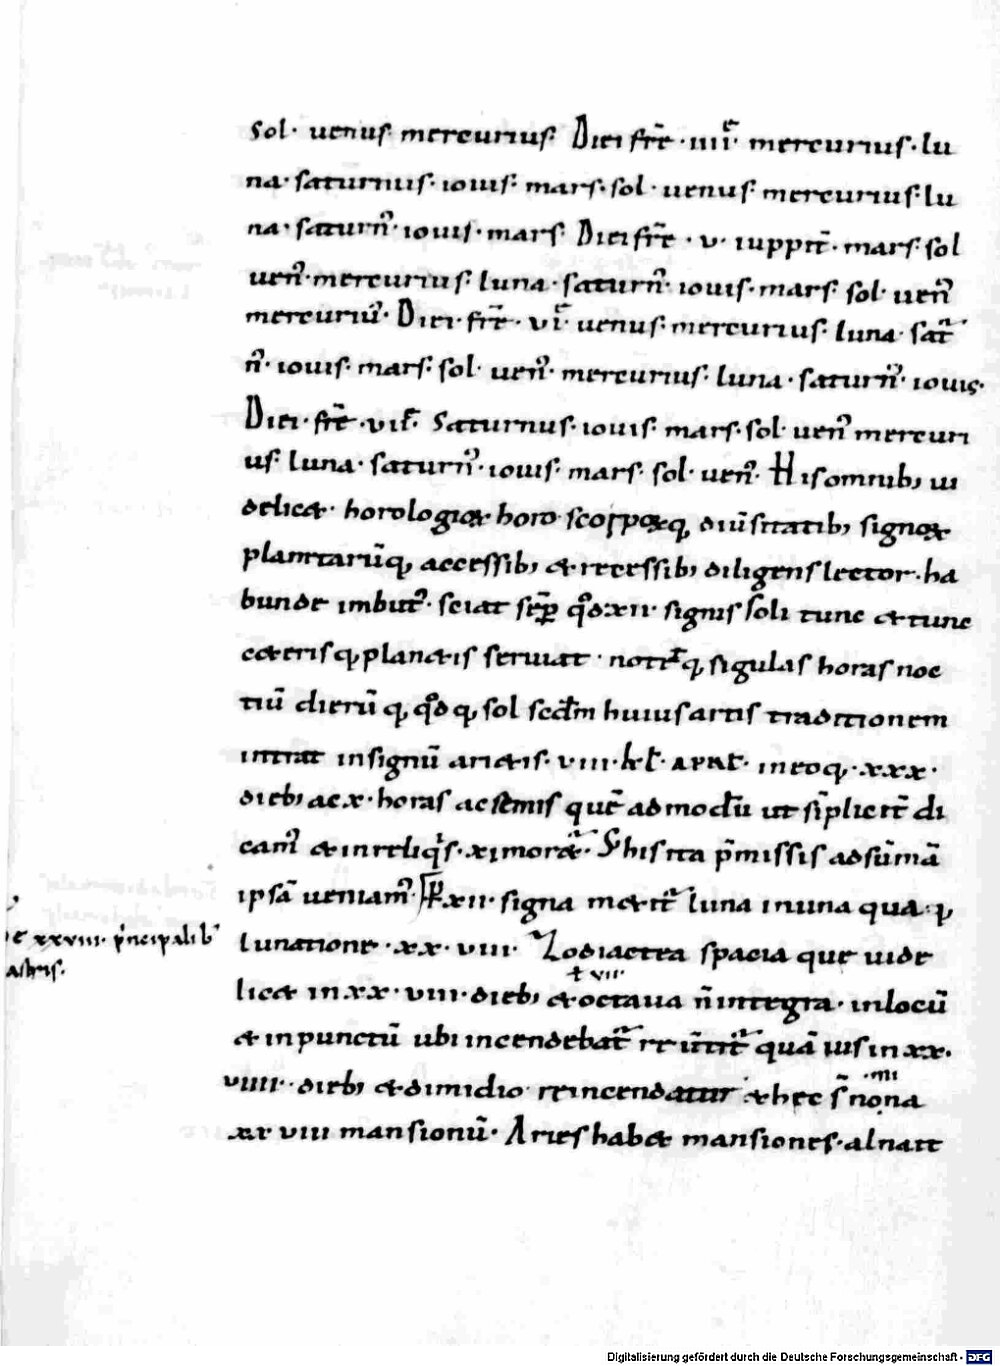 sol· uenus· mercurius· Diei fr̄e ·iiii· mercurius· lu
na· saturnus· iouis· mars· sol· uenus· mercurius· lu
na· saturn᾽· iouis· mars· Diei fr̄e · v· iuppit̄· mars· sol
uen᾽· mercurius· luna· saturn᾽· iouis· mars· sol· uen᾽
mercuriu᾽· Diei· fr̄e· vi· uenus· mercurius· luna· sat̄
n᾽· iouis· mars· sol· uen᾽· mercurius· luna· saturn᾽· iouis·
Diei· fr̄e· vii· Saturnus· iouis· mars· sol· uen᾽ mercuri
us· luna· saturn᾽· iouis· mars· sol· uen᾽· His omnib; ui
delic& horologioꝝ horoscoppoꝝq; diuūsitatib; signoꝝ
planetarūq; accessib; & recessib; diligens lector· ha
bunde imbut᾽· sciat sēp qd̄ xii· signis soli tunc & tunc
c&erisq; plan&is seruiat· sīgulas horas noc
tiū dierūq; qd̄q; sol scd̄m huius artis traditionem
intrat insignū ari&is· viii· kl̄· april̄· ineoq; xxx·
dieb; ac x· horas ac semis quē ad modū ut sīplicit̄ di
cam᾽ & inreliqs· xi mor&· his ita p̄missis adsūmā
ipsā ueniam᾽· xii· signa m&it̄ luna inuna quaq;
lunatione· xx· viii· Zodiactea spacia que uide
lic& in xx· viii· dieb; & octaua n̄ integra· inlocū
+ vii·
& inpunctū ubi incendebat̄ quā ius in xx·
viiii· dieb; & dimidio reincendatur & hec s̄ noīna
xx viii mansionū· Aries hab& mansiones· alnait
e xxviii· p̄ncipalib᾽
astris·